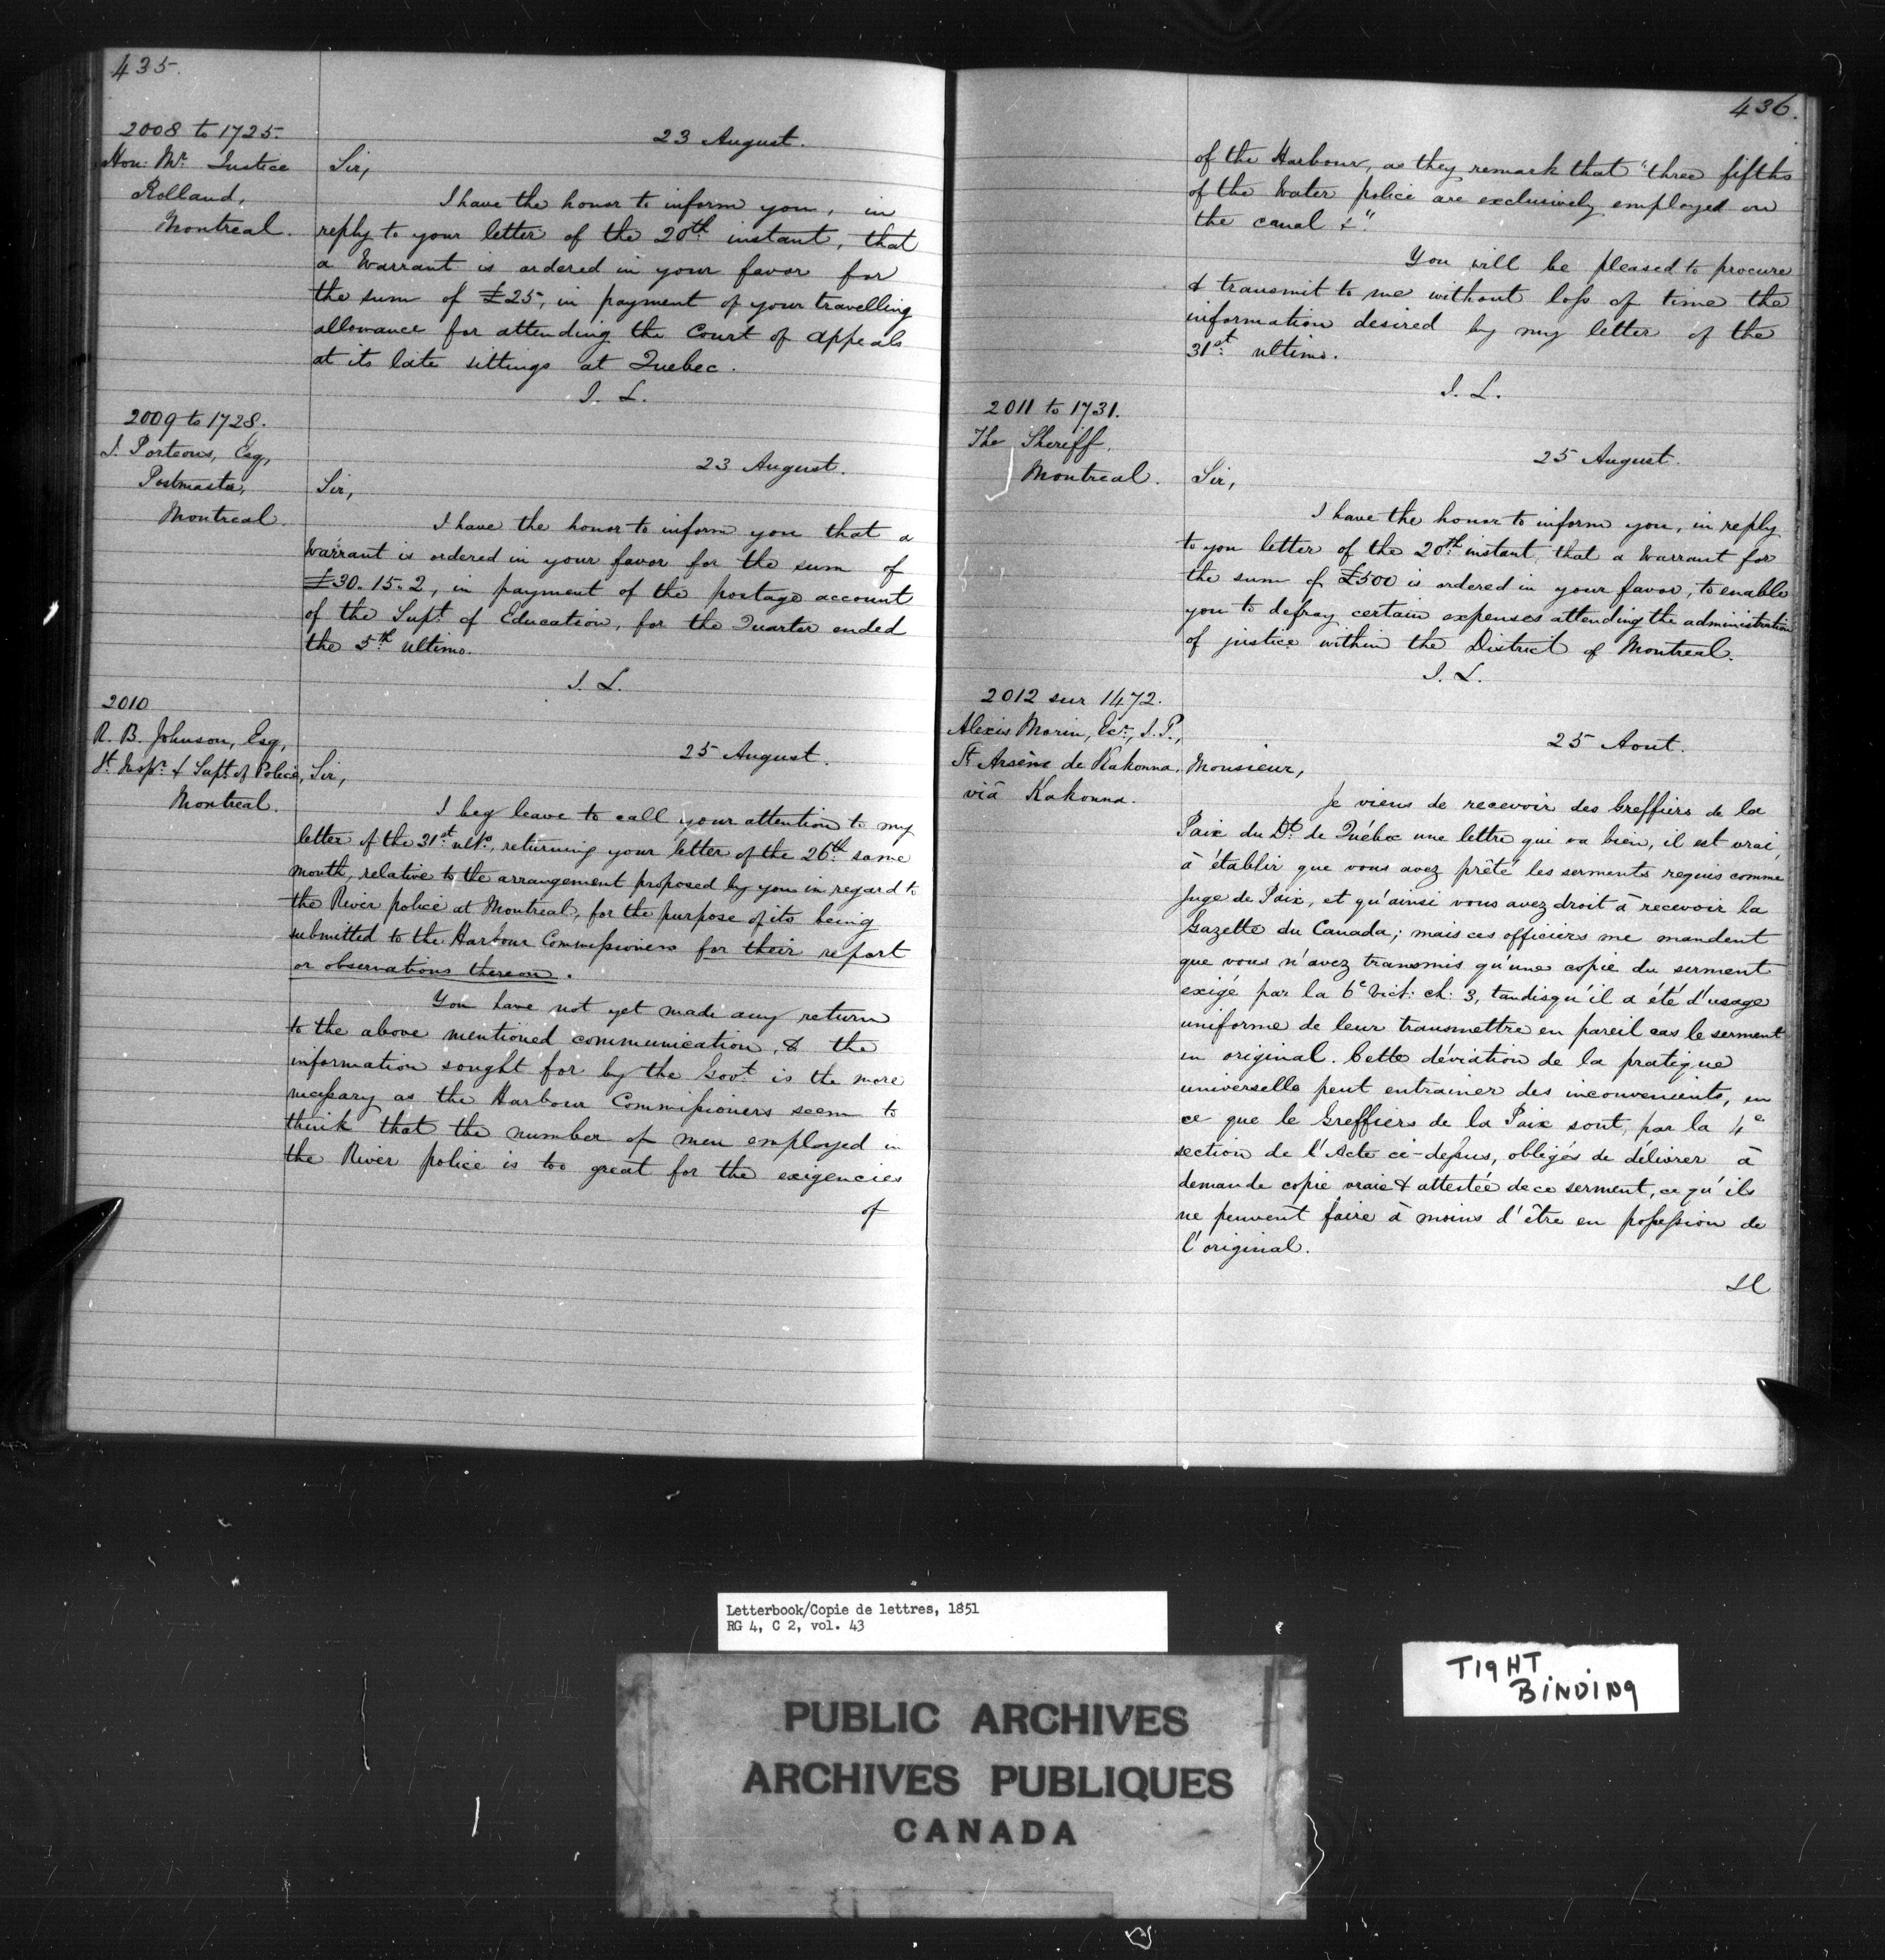 435.
2008 to 1725.
Hon: Mr. Justice
Rolland,
Montreal.
23 August.
Sir,
I have the honor to inform you, in
reply to your letter of the 20th instant, that
a Warrant is ordered in your favor for
the sum of £25, in payment of your travelling
allowance for attending the Court of Appeals
at its late sittings at Quebec.
J. L.
2009 to 1728.
J. Porteous, Esq,
Postmaster,
Montreal.
23 August.
Sir,
I have the honor to inform you that a
Warrant is ordered in your favor for the sum of
£30.15.2, in payment of the postage account
of the Supt. of Education, for the Quarter ended
the 5th ultimo.
J. L.
2010
R. B. Johnson, Esq,
& Supt. of Police,
Montreal.
25 August.
Sir,
I beg leave to call your attention to my
letter of the 31st ulto, returning your letter of the 26th same
month, relative to the arrangement proposed by you in regard to
the River police at Montreal, for the purpose of its being
submitted to the Harbour Commissioners for their report
or observations thereon.
You have not yet made any return
to the above mentioned communication, & the
information sought for by the Govt. is the more
necessary as the Harbour Commissioners seem to
think that the number of men employed in
the River police is too great for the exigencies
of
436.
of the Harbour, as they remark that "three fifths
of the Water police are exclusively employed on
the canal &".
You will be pleased to procure
& transmit to me without loss of time the
information desired by my letter of the
31st ultimo.
J. L.
2011 to 1731.
The Sheriff,
Montreal.
25 August.
Sir,
I have the honor to inform you, in reply
to you letter of the 20th instant, that a Warrant for
the sum of £500 is ordered in your favor, to enable
you to defray certain expenses attending the administration
of justice within the District of Montreal.
J. L.
2012 sur 1472.
Alexis Morin, Ecr., J.P.,
St Arsène de Kakonna,
viâ Kakonna.
25 Aout.
Monsieur,
Je viens de recevoir des Greffiers de la
Paix du Dt. de Québec une lettre qui va bien, il est vrai,
à établir que vous avez prêté les serments requis comme
Juge de Paix, et qu'ainsi vous avez droit à recevoir la
Gazette du Canada; mais ces officiers me mandent
que vous n'avez transmis qu'une copie du serment
exigé par la 6e Vict: ch: 3, tandisqu'il a été d'usage
uniforme de leur transmettre en pareil cas le serment
en original. Cette déviation de la pratique
universelle peut entrainer des inconvenients, en
ce que le Greffiers de la Paix sont, par la 4e
section de l'Acte ci-dessus, obligés de délivrer à
demande copie vraie & attestée de ce serment, ce qu'ils
ne peuvent faire à moins d'être en possession de
l'original.
Letterbook/Copie de lettres, 1851
RG 4, C 2, vol. 43
TIGHT
BINDING
PUBLIC ARCHIVES
ARCHIVES PUBLIQUES
CANADA